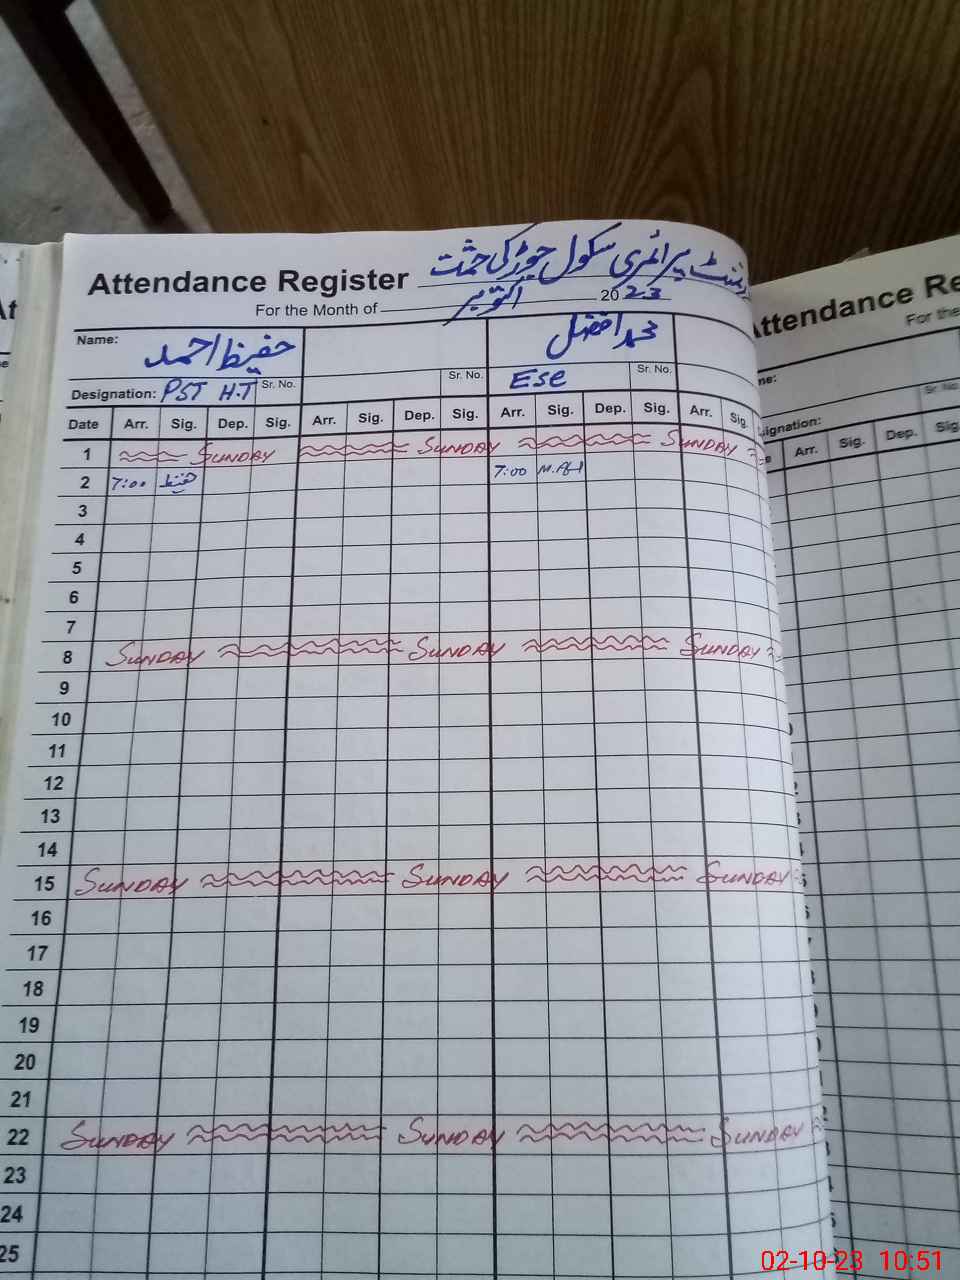 Attendance Register گورنمنٹ پرائمری سکول جوڑکی حمت
For the Month of اکتوبر 2023
Name: حفیظ احمد محمد افضل
Designation: PST H.T Sr. No. Sr. No. ESE Sr. No.
Date Arr. Sig. Dep. Sig. Arr. Sig. Dep. Sig. Arr. Sig. Dep. Sig. Arr. Sig.
1 SUNDAY SUNDAY SUNDAY
2 7:00 حفیظ 7:00
3
4
5
6
7
8 SUNDAY SUNDAY SUNDAY
9
10
11
12
13
14
15 SUNDAY SUNDAY SUNDAY
16
17
18
19
20
21
22 SUNDAY SUNDAY SUNDAY
23
24
25
Attendance Re
For the
Sr. No
Arr. Sig. Dep. Sig
02-10-23 10:51